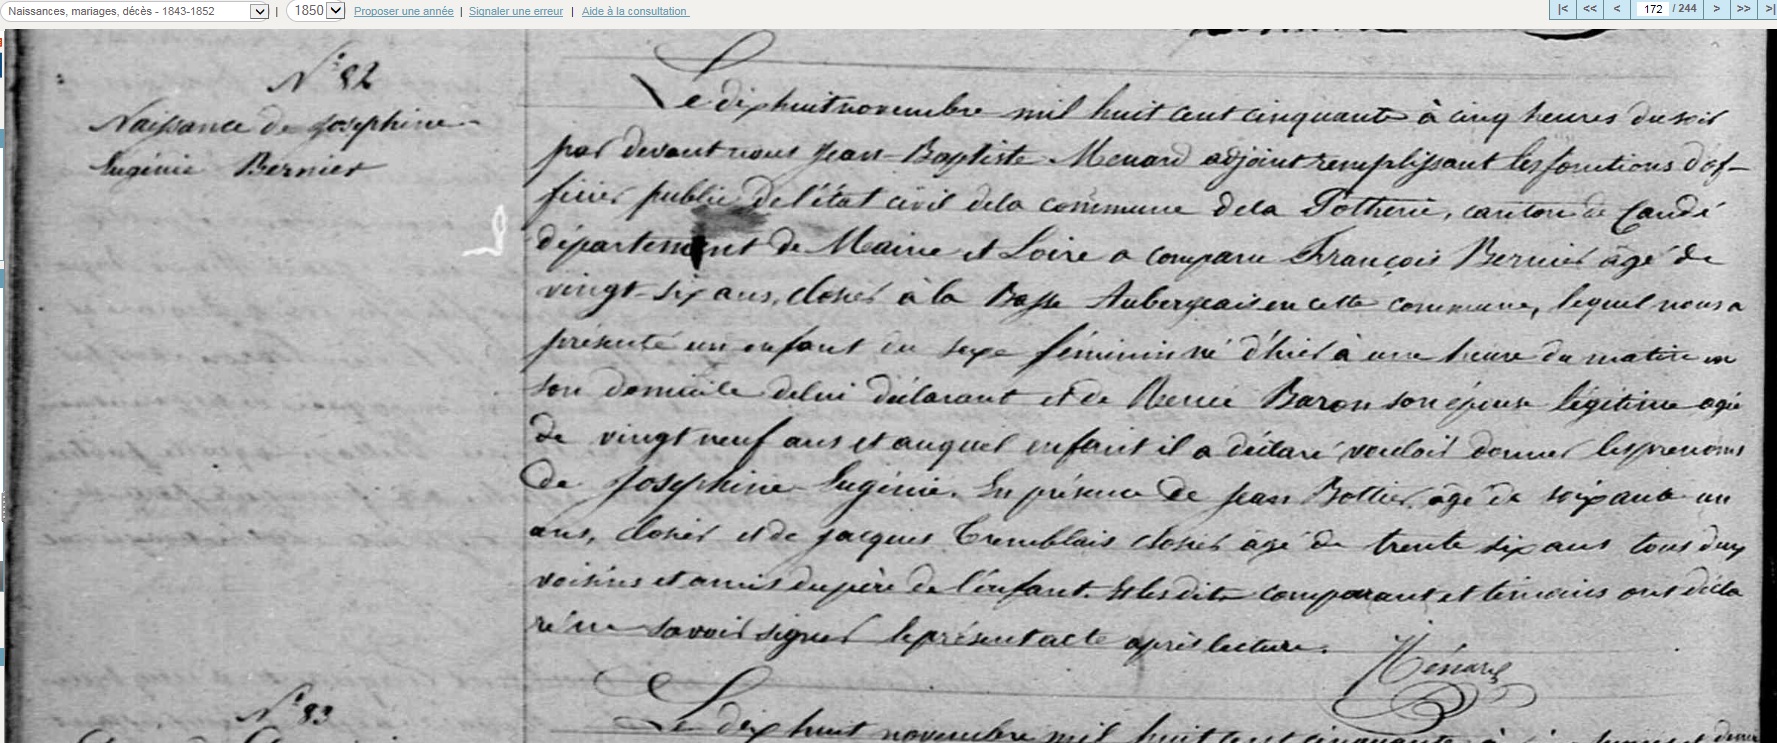 Naissances, mariages, décès - 1843-1852 | 1850 Proposer une année | Signaler une erreur | Aide à la consultation |< << < 172 / 244 > >> >|
N° 82
Naissance de Josephine
Eugénie Bernier
Le dix huit novembre mil huit cent cinquante à cinq heures du soir
par devant nous Jean-Baptiste Menard adjoint remplissant les fonctions d'of-
ficier public de l'état civil de la commune de la Potherie, canton de Candé
département de Maine et Loire a comparu François Bernier âgé de
vingt-six ans, closier à la Basse Aubergeais en cette commune, lequel nous a
présenté un enfant du sexe féminin né d'hier à une heure du matin en
son domicile de lui déclarant et de Renée Baron son épouse légitime agée
de vingt neuf ans et auquel enfant il a déclaré vouloir donner les prénoms
de Josephine Eugénie. En présence de Jean Bottier, âgé de soixante un
ans, closier et de Jacques Tremblais closier âgé de trente six ans tous deux
voisins et amis du père de l'enfant. Et les dits comparant et témoins ont décla
ré ne savoir signer le présent acte après lecture.
Ménard
N° 83
Le dix huit novembre mil huit cent cinquante à